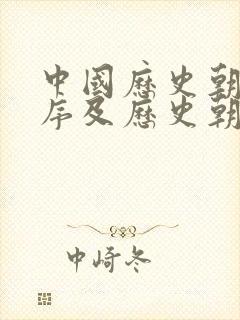 中國歷史朝
序及歷史朝
中崎冬